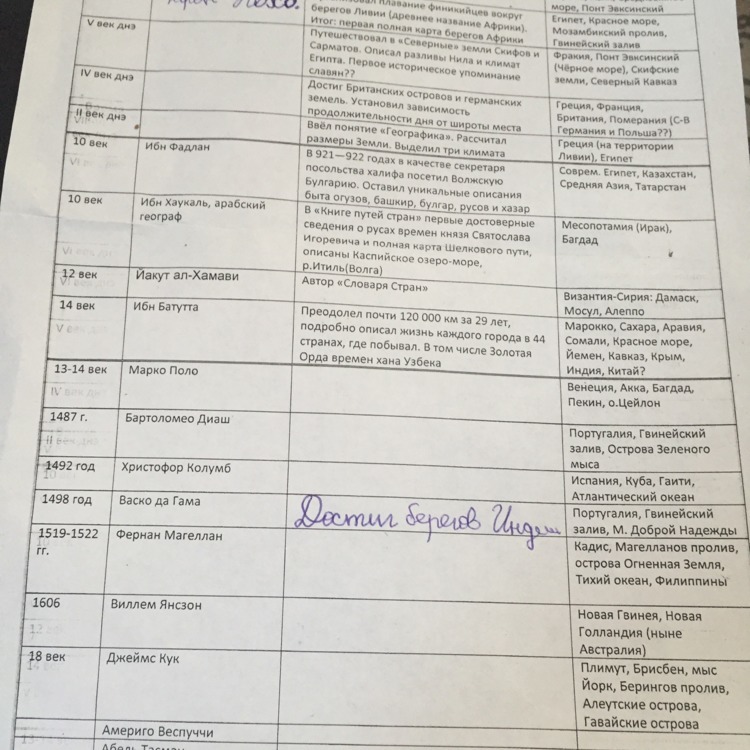 плавание финикийцев вокруг
берегов Ливии (древнее название Африки).
Итог: первая полная карта берегов Африки
море, Понт Эвксинский
V век днэ
Путешествовал в «Северные» земли Скифов и
Сарматов. Описал разливы Нила и климат
Египта. Первое историческое упоминание
славян??
Египет, Красное море,
Мозамбикский пролив,
Гвинейский залив
Фракия, Понт Эвксинский
(Чёрное море), Скифские
земли, Северный Кавказ
IV век днэ
Достиг Британских островов и германских
земель. Установил зависимость
продолжительности дня от широты места
Греция, Франция,
Британия, Померания (С-В
Германия и Польша??)
II век днэ
Ввёл понятие «Географика». Рассчитал
размеры Земли. Выделил три климата
Греция (на территории
Ливии), Египет
10 век
Ибн Фадлан
В 921—922 годах в качестве секретаря
посольства халифа посетил Волжскую
Булгарию. Оставил уникальные описания
быта огузов, башкир, булгар, русов и хазар
Соврем. Египет, Казахстан,
Средняя Азия, Татарстан
10 век
Ибн Хаукаль, арабский
географ
В «Книге путей стран» первые достоверные
сведения о русах времен князя Святослава
Игоревича и полная карта Шелкового пути,
описаны Каспийское озеро-море,
р.Итиль(Волга)
Месопотамия (Ирак),
Багдад
12 век
Йакут ал-Хамави
Автор «Словаря Стран»
Византия-Сирия: Дамаск,
Мосул, Алеппо
14 век
Ибн Батутта
Преодолел почти 120 000 км за 29 лет,
подробно описал жизнь каждого города в 44
странах, где побывал. В том числе Золотая
Орда времен хана Узбека
Марокко, Сахара, Аравия,
Сомали, Красное море,
Йемен, Кавказ, Крым,
Индия, Китай?
13-14 век
Марко Поло
Венеция, Акка, Багдад,
Пекин, о.Цейлон
1487 г.
Бартоломео Диаш
Португалия, Гвинейский
залив, Острова Зеленого
мыса
1492 год
Христофор Колумб
Испания, Куба, Гаити,
Атлантический океан
1498 год
Васко да Гама
Достиг берегов Индии
Португалия, Гвинейский
залив, М. Доброй Надежды
1519-1522
гг.
Фернан Магеллан
Кадис, Магелланов пролив,
острова Огненная Земля,
Тихий океан, Филиппины
1606
Виллем Янсзон
Новая Гвинея, Новая
Голландия (ныне
Австралия)
18 век
Джеймс Кук
Плимут, Брисбен, мыс
Йорк, Берингов пролив,
Алеутские острова,
Гавайские острова
Америго Веспуччи
Абель Тасман